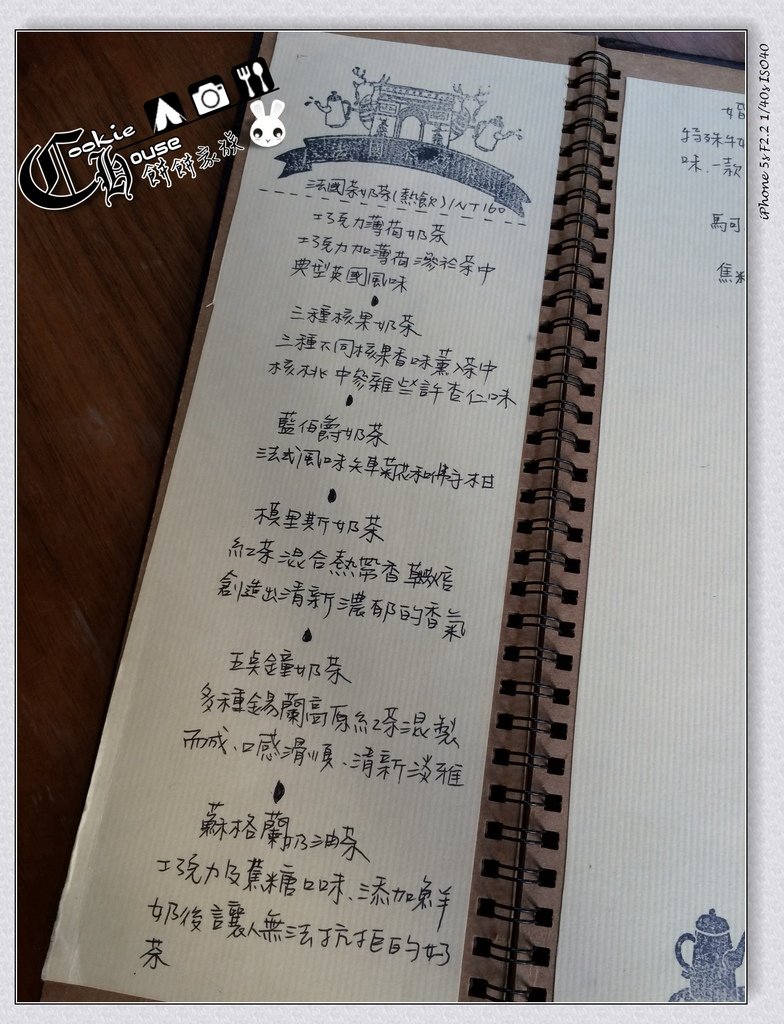 Cookie House
餅餅家族
iPhone 5s F2.2 1/40s ISO40
法國茶奶茶(熱飲)/NT160
巧克力薄荷奶茶
巧克力加薄荷滲於茶中
典型英國風味
三種核果奶茶
三種不同核果香味薰入茶中
核桃中參雜些許杏仁味
藍伯爵奶茶
法式風味矢車菊花和佛手柑
模里斯奶茶
紅茶混合熱帶香草焙
創造出清新濃郁的香氣
五點鐘奶茶
多種錫蘭高原紅茶混製
而成、口感滑順、清新淡雅
蘇格蘭奶油茶
巧克力及蕉糖口味、添加鮮
奶後讓人無法抗拒的好
茶
特殊牛奶
味、一款
馬可
焦